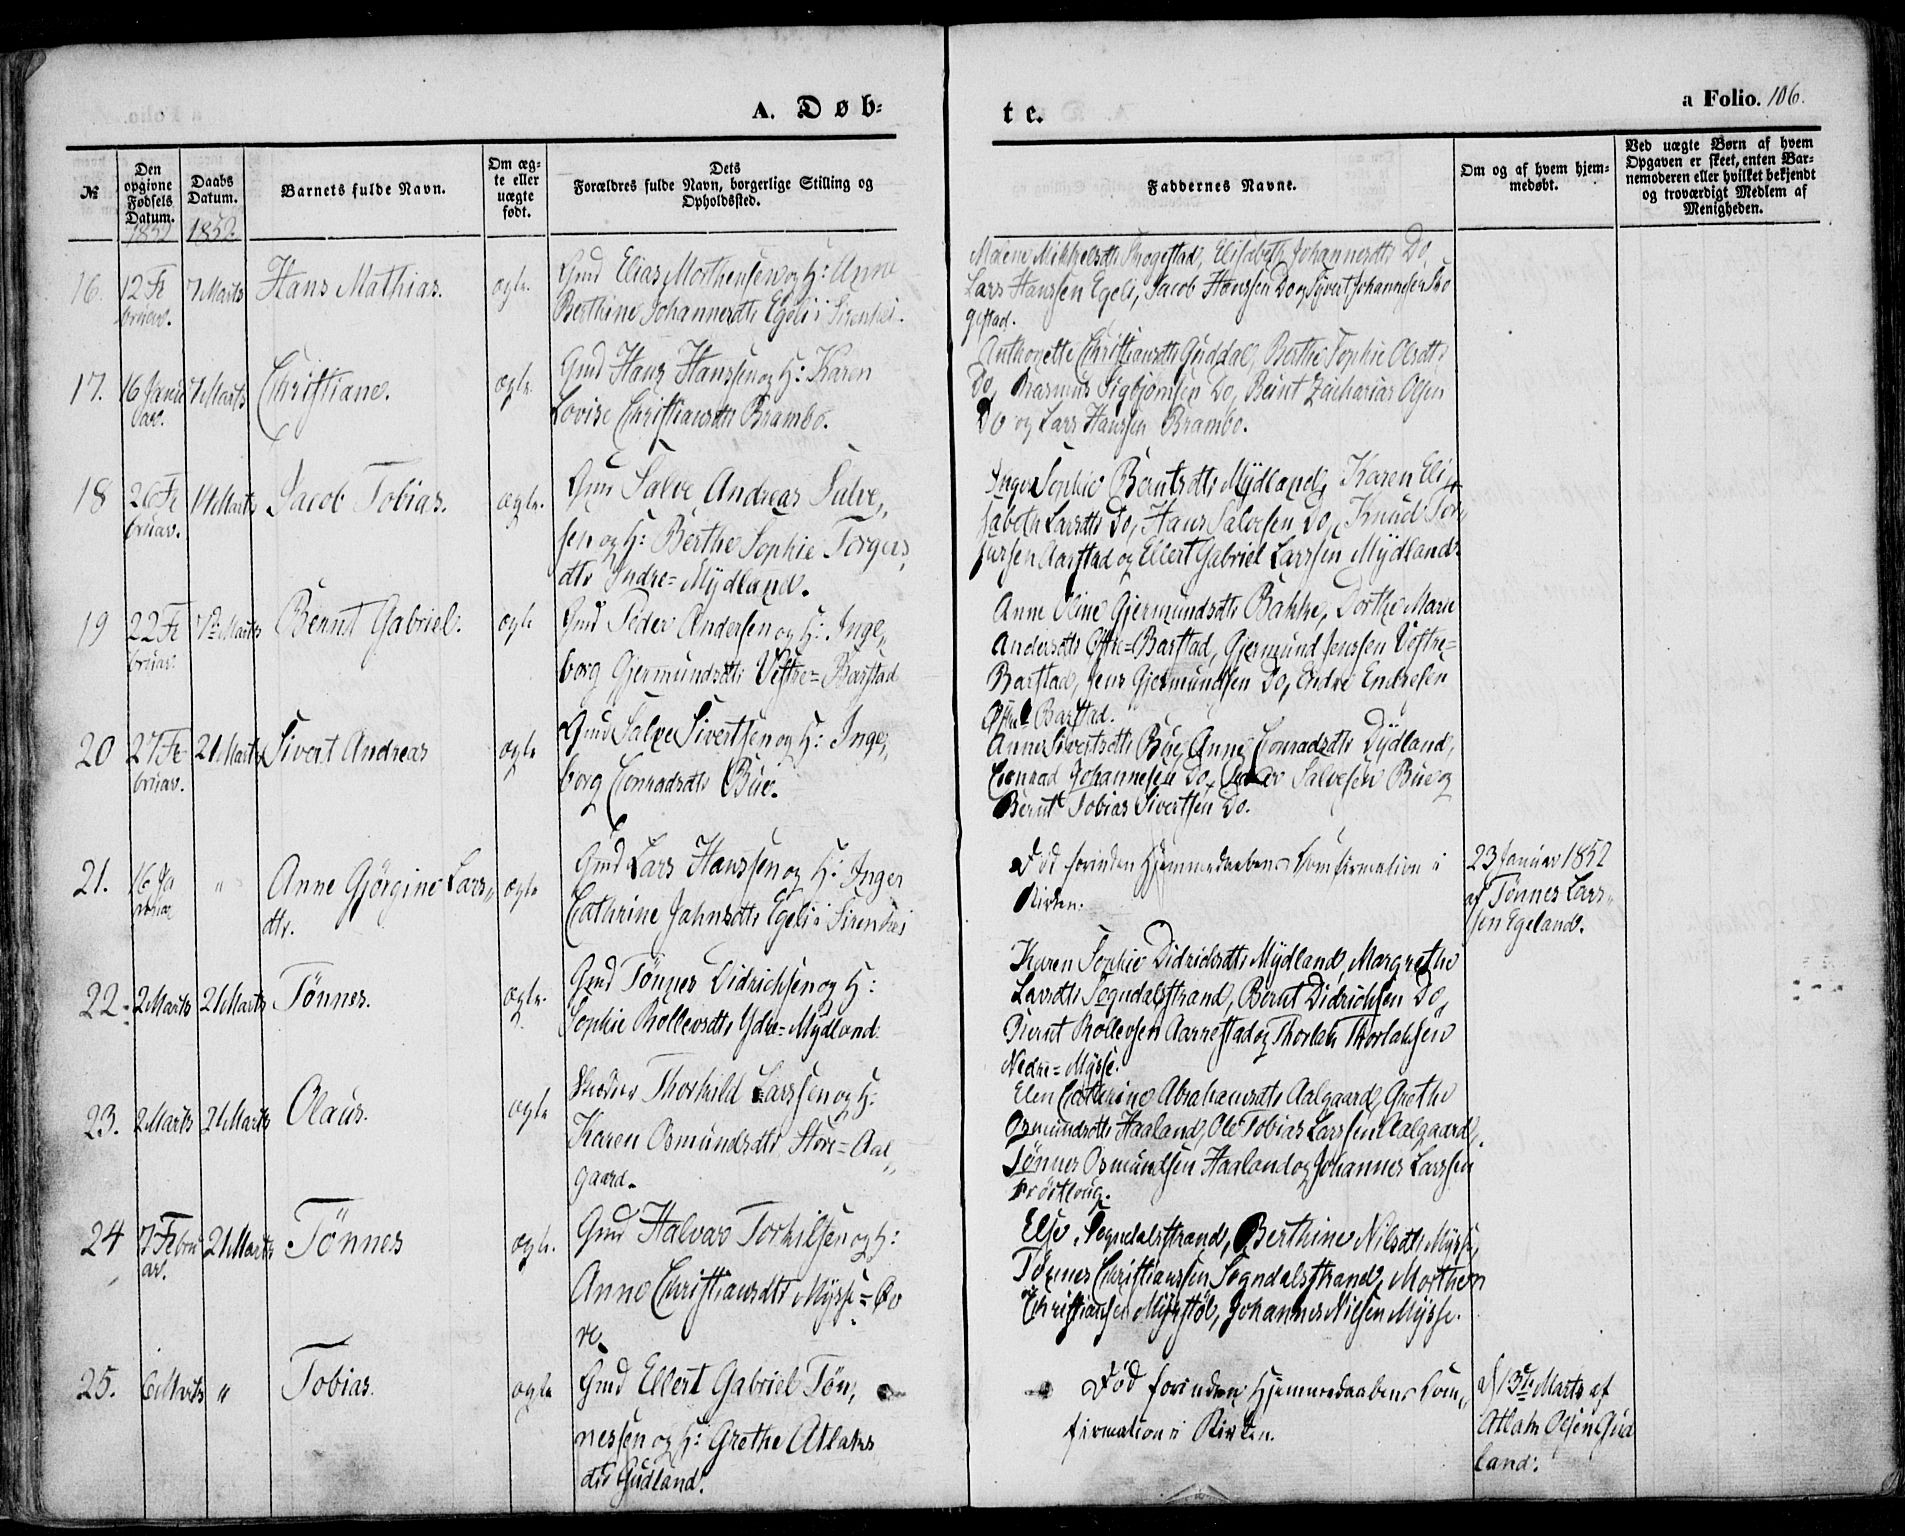 A. Døb-
te.
a Folio. 106.
№
Den opgivne Fødsels Datum. 1852
Daabs Datum. 1852
Barnets fulde Navn.
Om ægte eller uægte født.
Dets Forældres fulde Navn, borgerlige Stilling og Opholdssted.
Faddernes Navne.
Om og af hvem hjemmedøbt.
Ved uægte Børn af hvem Opgaven er skeet, enten Barnemoderen eller hvilket bekjendt og troværdigt Medlem af Menigheden.
16. 12 Februar. 7 Marts Hans Mathias. ægte.
Gmd Elias Morthensen og H: Anne
Berthine Johannesdtr Egeli i Sirendal.
Malene Mikkelsdtr Skogestad, Elisabeth Johannesdtr Do,
Lars Hanssen Egeli, Jacob Hanssen Do og Sivert Johannesen Sko
gestad.
17. 16 Januar. 7 Marts Christiane. ægte
Gmd Hans Hanssen og H: Karen
Lovise Christiansdtr Brambo.
Anthonette Christiansdtr Guddal, Berthe Sophie Olsdtr
Do, Rasmus Sigbjørnsen Do, Beint Zacharias Olsen
Do og Lars Hanssen Brambo.
18 26 Februar. 14 Marts Jacob Tobias. ægte.
Gmd Salve Andreas Salve„
sen og H: Berthe Sophie Torgers
dtr Indre=Mydland.
Inger Sophie Berntsdtr Mydland, Karen Eli
sabeth Larsdtr Do, Hans Salvesen Do, Knud Tor
jussen Aarstad og Ellert Gabriel Larssen Mydland.
19 22 Februar. 7de Marts Bernt Gabriel. ægte
Gmd Peder Andersen og H: Inge„
borg Gjermundsdtr Vestre=Barstad
Anne Oline Gjermundsdtr Bakke, Dorthe Marie
Andersdtr Østre=Barstad, Gjermund Jenssen Vestre=
Barstad, Jens Gjermundsen Do, Endre Endresen
Østre Barstad.
20 27 Februar. 21 Marts Sivert Andreas ægte
Gmd Salve Sivertsen og H: Inge„
borg Conradsdtr Bue.
Anne Sivertsdtr Bue, Anne Conradsdtr Dydland,
Conrad Johannesen Do, Peder Salvesen Bue og
Bernt Tobias Sivertsen Do.
21. 16 Januar „ Anne Gjørgine Lars„
dtr. ægte
Gmd Lars Hanssen og H: Inger
Cathrine Jahnsdtr Egeli i Sirendal
Død forinden Hjemmedaabens Confirmation i
Kirken.
23 Januar 1852
af Tønnes Lars„
sen Egeland.
22. 2 Marts 21 Marts Tønnes. ægte.
Gmd Tønnes Didrichsen og H:
Sophie Rollevsdtr Ydre=Mydland.
Karen Sophie Didrichsdtr Mydland, Margrethe
Larsdtr Sogndalsstrand, Bernt Didrichsen Do,
Bernt Rollevsen Aarrestad og Thorlak Thorlaksen
Nedre=Mysse.
23. 2 Marts 21 Marts Olaus. ægte
Thorkild Larssen og H:
Karen Osmundsdtr Store=Aal„
gaard.
Elen Cathrine Abrahamsdtr Aalgaard, Grethe
Osmundsdtr Haaland, Ole Tobias Larssen Aalgaard,
Tønnes Osmundsen Haaland og Johannes Larssen
Frøstloug.
24 7 Februar. 21 Marts Tønnes ægte.
Gmd Halvar Torkilsen og H:
Anne Christiansdtr Mysse=Øv
re.
Else Sogndalsstrand, Berthine Nilsdtr Mysse,
Tønnes Christianssen Sogndalsstrand, Morthen
Christiansen Myrstøl, Johannes Nilsen Mysse.
25. 6 Marts „ Tobias. ægte
Gmd Ellert Gabriel Tøn„
nessen og H: Grethe Atlaks
dtr Gudland.
Død forinden Hjemmedaabens Con„
firmation i Kirken.
d/13de Marts af
Atlak Olsen Gud
land.